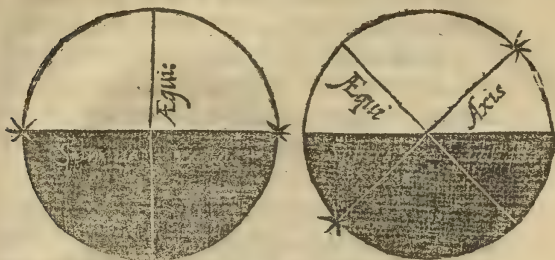 Æquis
Æqui
Axis